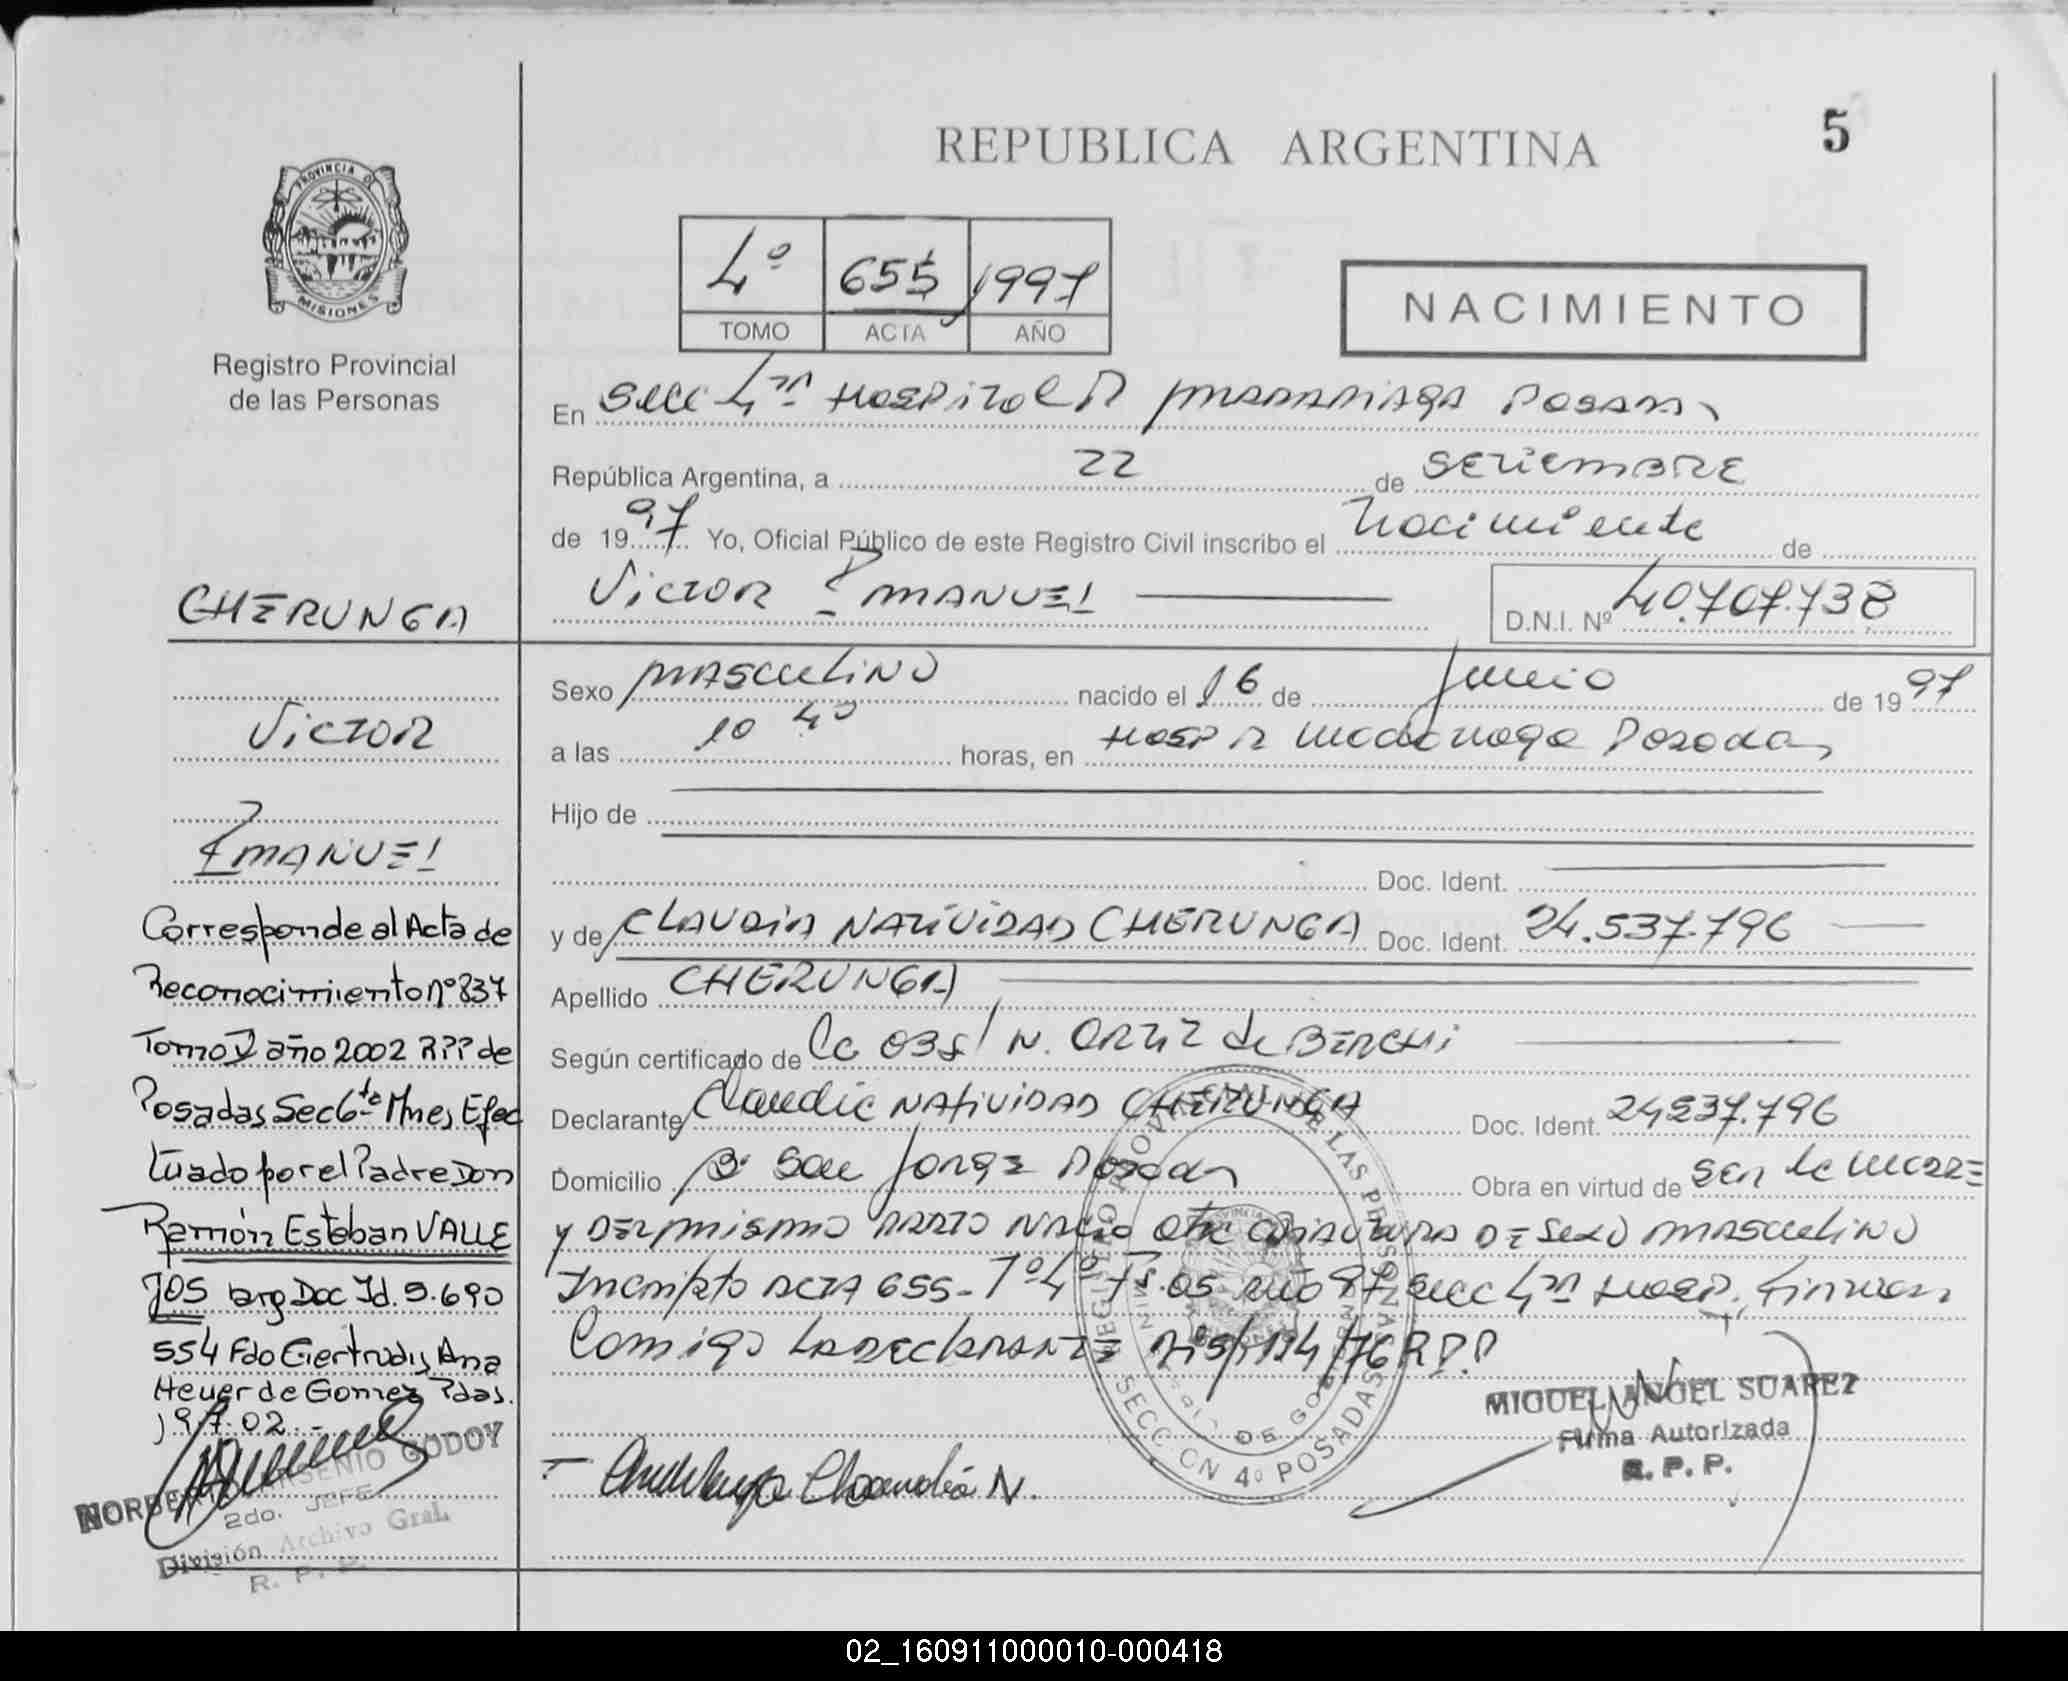 REPUBLICA ARGENTINA
5
PROVINCIA DE
MISIONES
Registro Provincial
de las Personas
4º 655 1997
TOMO ACTA AÑO
NACIMIENTO
En Secc 4ta Hospital R Madariaga Posadas
República Argentina, a 22 de SETIEMBRE
de 1997 Yo, Oficial Público de este Registro Civil inscribo el Nacimiento de
Victor EMANUEL
D.N.I. Nº 40.707.738
Sexo MASCULINO nacido el 16 de Junio de 1997
a las 10 40 horas, en Hosp R Madariaga Posadas
Hijo de
Doc. Ident.
y de CLAUDIA NATIVIDAD CHERUNGA Doc. Ident. 24.537.796
Apellido CHERUNGA
Según certificado de la OBS/ N. ORTIZ de BERCHI
Declarante Claudia NATIVIDAD CHERUNGA Doc. Ident. 24537.796
Domicilio Bº San Jorge Posadas Obra en virtud de ser la MADRE
y DEL MISMO PARTO NACIO otra CRIATURA DE SEXO MASCULINO
Inscripto ACTA 656- Tº4º Fs.05 año 97 Secc 4ta Hosp. Firman
Comigo LA DECLARANTE R.P.P
Cherunga Claudia N.
MIGUEL ANGEL SUAREZ
Firma Autorizada
R. P. P.
REGISTRO PROVINCIAL DE LAS PERSONAS
SECCION 4º POSADAS
CHERUNGA
Victor
EMANUEL
Corresponde al Acta de
Reconocimiento nº 837
Tomo V año 2002 RPP de
Posadas Sec 6ta Mnes Efec
tuado por el Padre Don
Ramón Esteban VALLE
JOS arg Doc Id. 9.690
554 Fdo Gertrudis Ana
Heuer de Gomez Pdas.
19.7.02.-
NORBERTO ARSENIO GODOY
2do. JEFE
División Archivo Gral.
R. P. P.
02_160911000010-000418